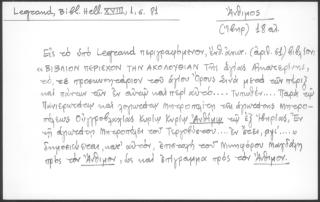 Legrand, Bibl. Hell. XVIII, 1, σ. 81
Ἄνθιμος
(Ἰβηρ) 18 αἰ.
Εἰς τὸ ὑπὸ Legrand περιγραφόμενον, (ἀρθ. 81) βιβλίον
« ΒΙΒΛΙΟΝ ΠΕΡΙΕΧΟΝ ΤΗΝ ΑΚΟΛΟΥΘΙΑΝ Τῆς ἁγίας Αἰκατερίνης,
τό, τε προσκυνητάριον τοῦ ἁγίου Ὄρους Σινᾶ μετὰ τῶν πέριξ
καὶ πάντων τῶν ἐν αὐτῷ καὶ περὶ αὐτό... Τυπωθέν... Παρὰ τοῦ
Πανιερωτάτου καὶ λογιωτάτου Μητροπολίτου τῆς ἁγιωτάτης Μητρο-
πόλεως Οὑγγροβλαχίας Κυρίου Κυρίου Ἀνθίμου τοῦ ἐξ Ἰβηρίας, Ἐν
τῇ ἁγιωτάτῃ Μητροπόλει τοῦ Τεργοβύστου... Ἐν ἔτει, αψι΄... »
δημοσιεύεται, κατ' αὐτόν, ἐπιστολὴ τοῦ
πρὸς τὸν Ἄνθιμον, ὡς καὶ ἐπίγραμμα πρὸς τὸν Ἄνθιμον.